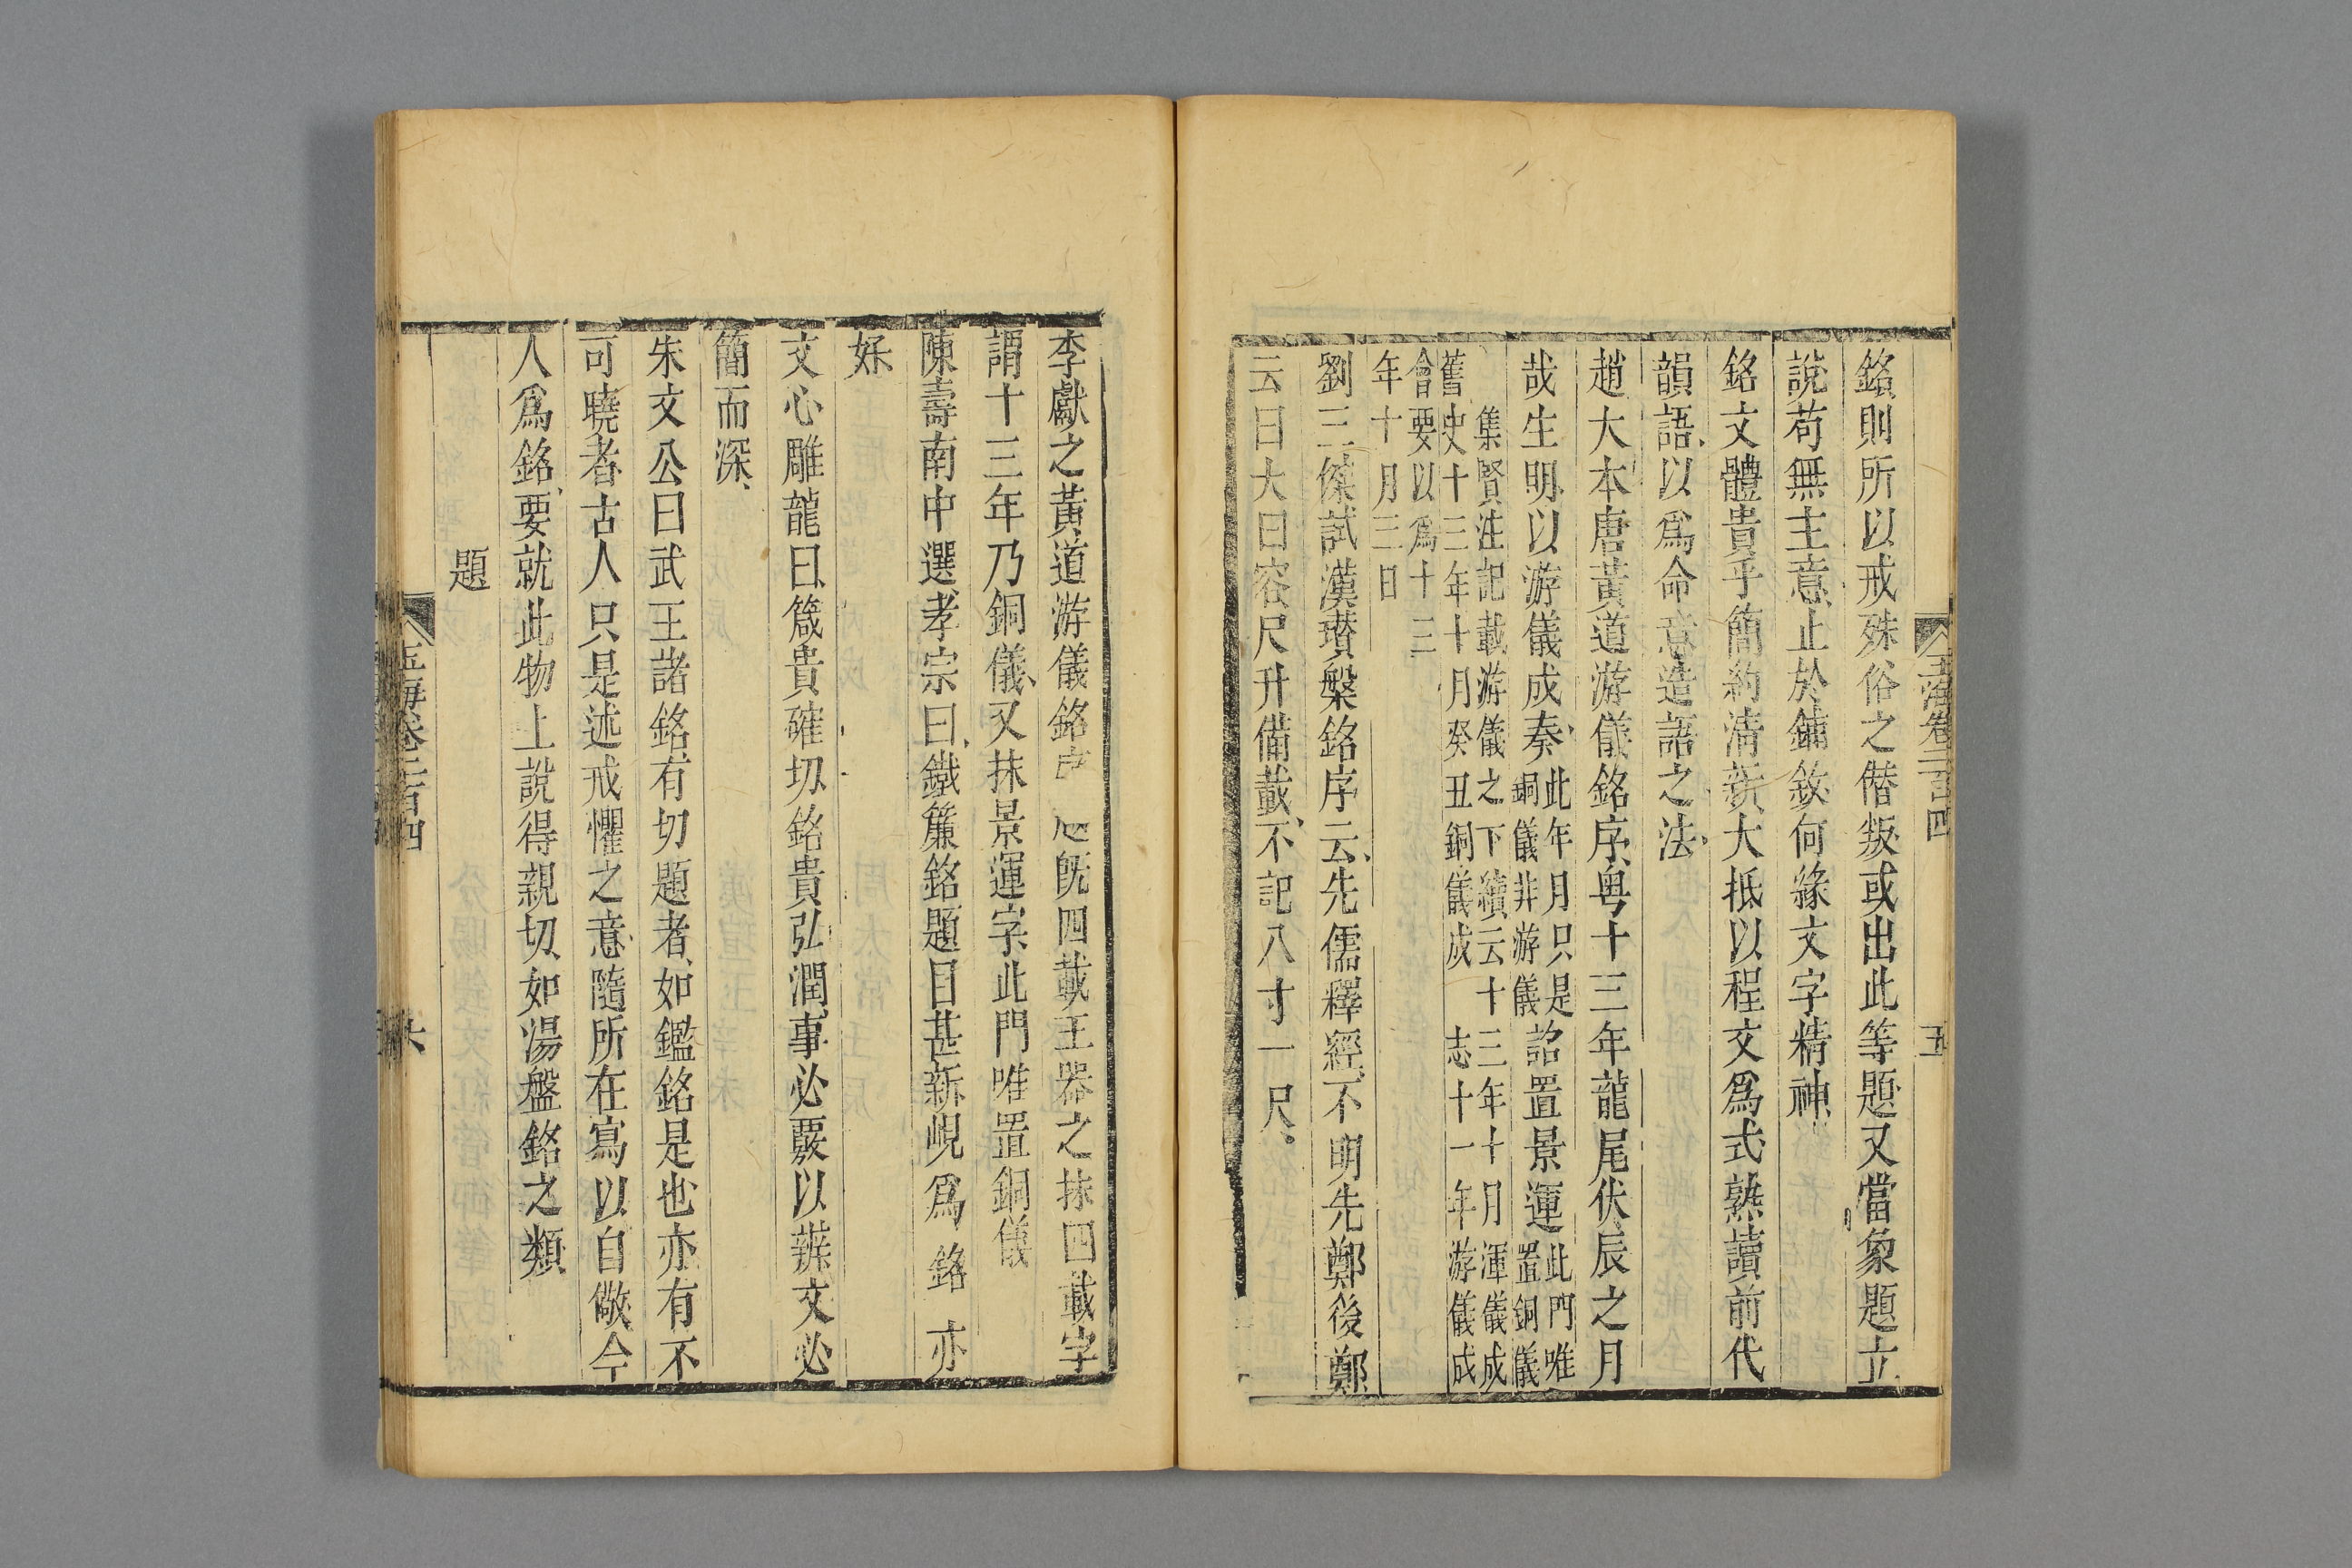 玉海卷二百四 五
銘則所以戒殊俗之僣叛或出此等題又當象題立
說苟無主意止於鋪敘何緣文字精神
銘文體貴乎簡約清新大抵以程文爲式熟讀前代
韻語以爲命意造語之法
趙大本唐黃道游儀銘序粤十三年龍尾伏辰之月
哉生明以游儀成奏此年月只是銅儀非游儀詔置景運此門唯置銅儀
集賢注記載游儀之下續云十三年十月渾儀成
舊史十三年十月癸丑銅儀成 志十一年游儀成
會要以爲十三
年十月三日
劉三傑試漢瓚槃銘序云先儒釋經不明先鄭後鄭
云日大日容尺升備載不記八寸一尺
李獻之黃道游儀銘 旣四載王器之抹四載字
謂十三年乃銅儀又抹景運字此門唯置銅儀
陳壽南中選孝宗曰鐵簾銘題目甚新峴爲銘亦
好
文心雕龍曰箴貴確切銘貴弘潤事必覈以辨文必
簡而深
朱文公曰武王諸銘有切題者如鑑銘是也亦有不
可曉者古人只是述戒懼之意隨所在寫以自儆今
人爲銘要就此物上說得親切如湯盤銘之類
題
玉海卷二百四 六